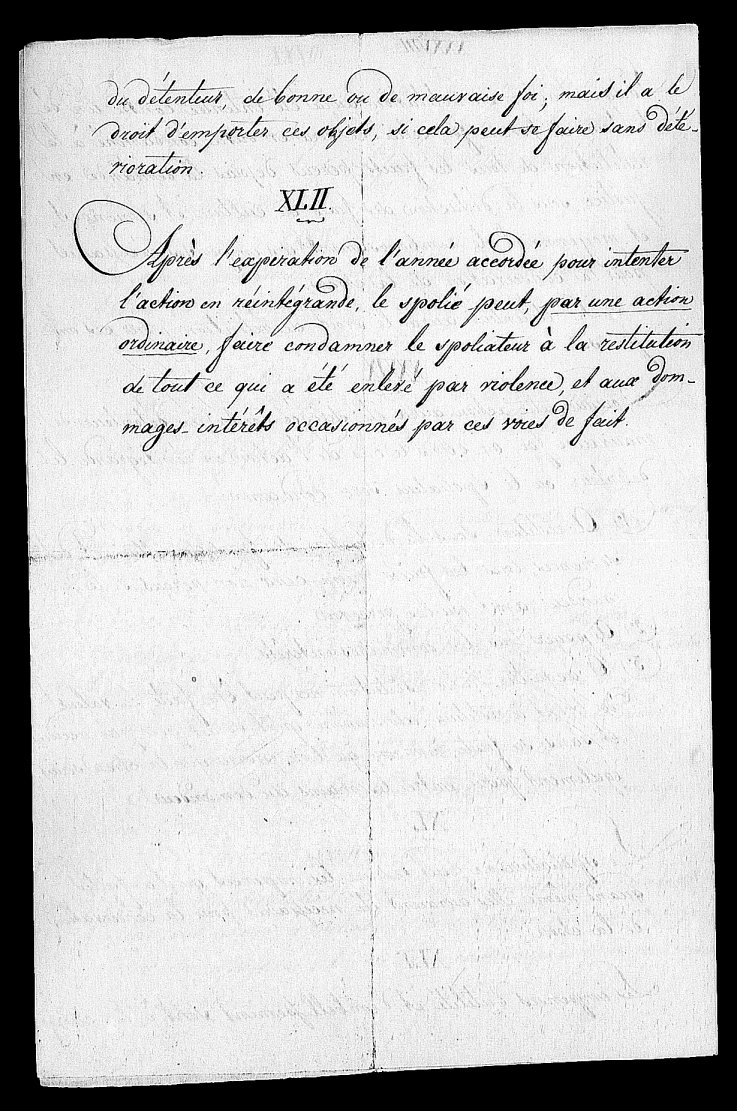 du détenteur, de bonne ou de mauvaise foi; mais il a le
droit d'emporter ces objets, si cela peut se faire sans dété-
rioration.
XLII.
Après l'experation de l'année accordée pour intenter
l'action en réintégrande, le spolié peut, par une action
ordinaire, faire condamner le spoliateur à la restitution
de tout ce qui a été enlevé par violence, et aux dom-
mages-intérêts occasionnés par ces voies de fait.